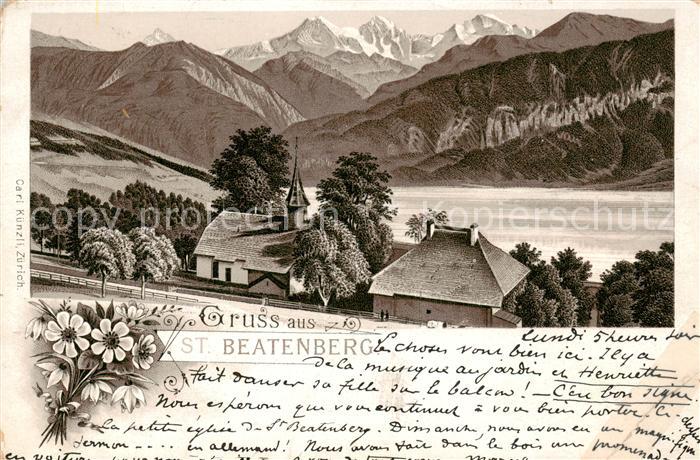 Carl Künzli, Zürich.
Gruss aus
ST. BEATENBERG
lundi 5 heures soir
Les choses vont bien ici. Il y a
de la musique au jardin et Henriette
fait danser sa fille sur le balcon! - C'est un bon signe
Nous espérons que vous continuez à vous bien porter. Ci-
la petite église de St Beatenberg. Dimanche nous avons eu un magnifique
sermon .... en allemand! Nous avons fait dans le bois une promenade
en voiture
copyright Kopierschutz